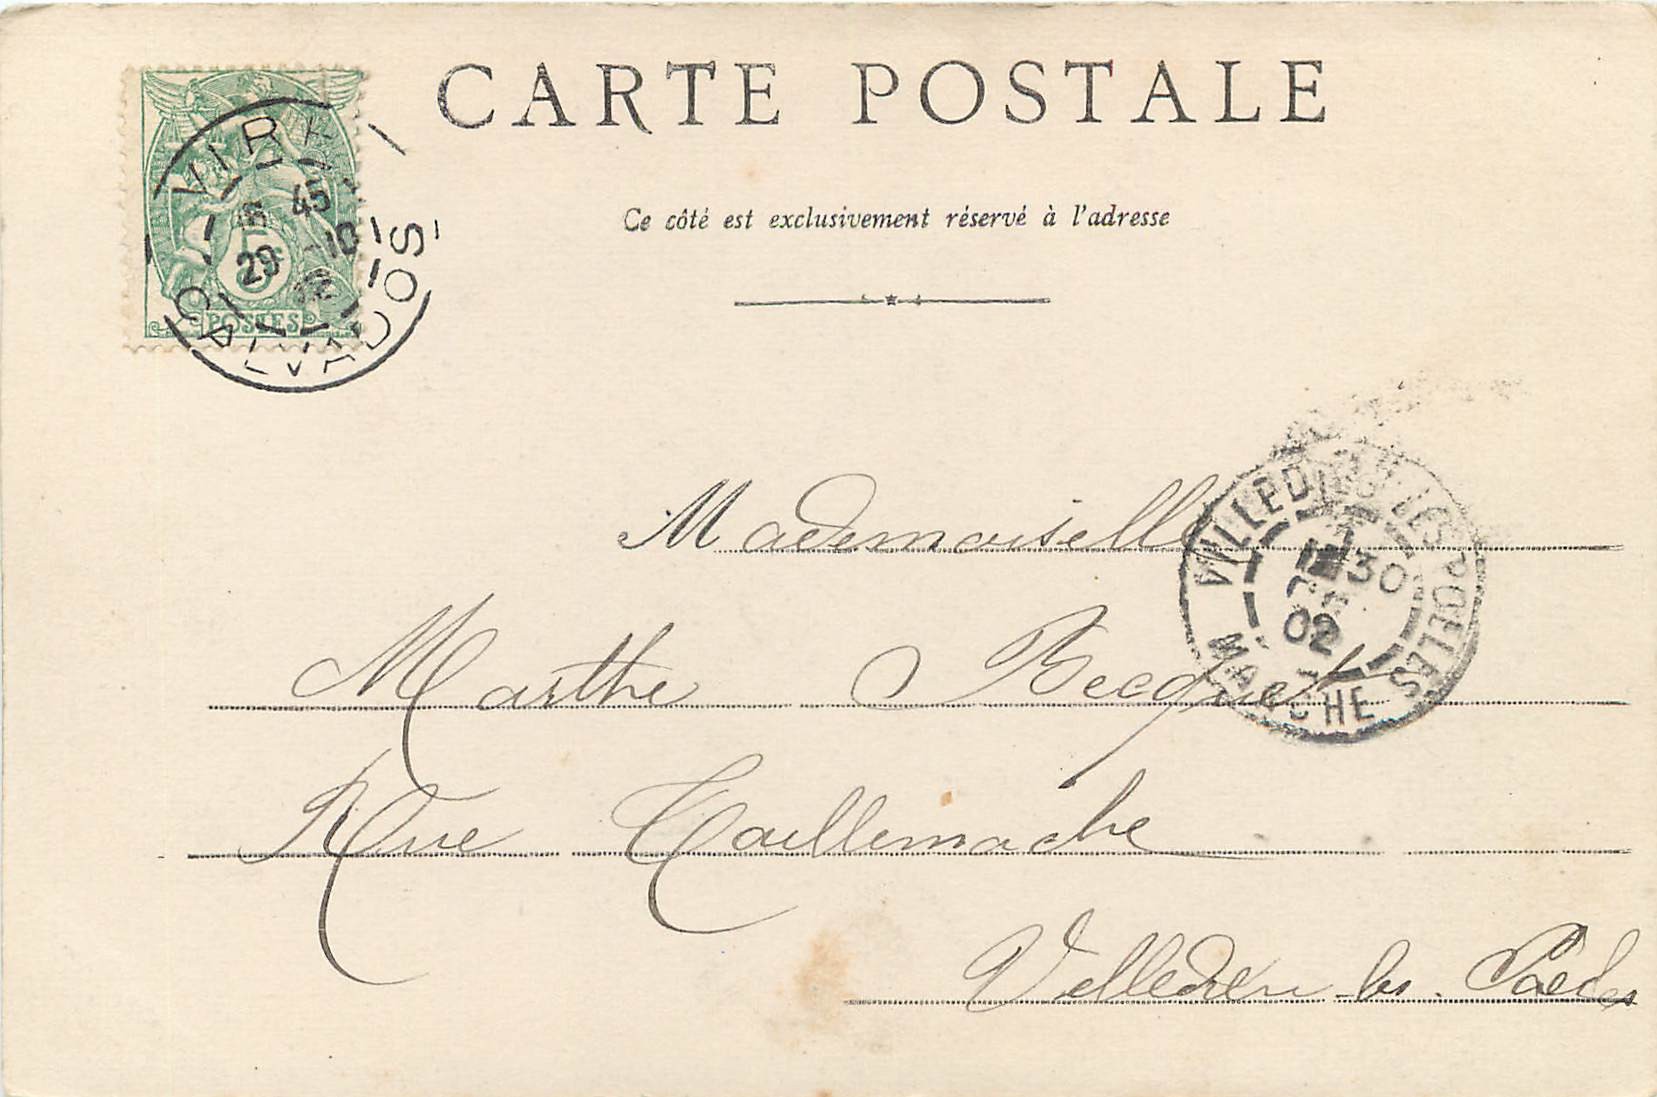 CARTE POSTALE
Ce côté est exclusivement réservé à l'adresse
VIRE
45
29 -10
CALVADOS
5c
POSTES
VILLEDIEU-LES-POELES
30
02
MANCHE
Mademoiselle
Marthe Becquet
Rue Taillemache
Villedieu les Poeles